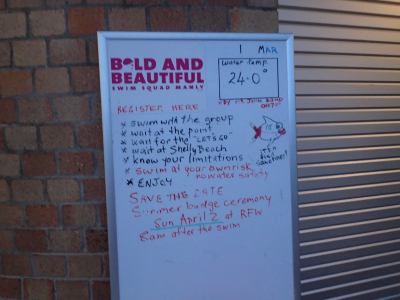 1 MAR
BOLD AND
BEAUTIFUL
SWIM SQUAD MANLY
Water temp
24.0°
REGISTER HERE
* swim with the group
* wait at the point
* wait for the "LET'S GO"
* wait at Shelly Beach
* know your limitations
* swim at your own risk
no water safety
* ENJOY
SAVE THE DATE
Summer badge ceremony
Sun April 2 at RFW
8am after the swim